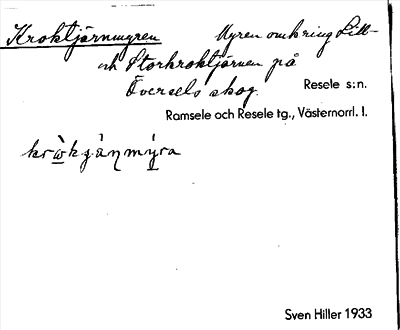 Kroktjärnmyren Myren omkring Lill-
och Storkroktjärnen på
Översels skog. Resele s:n.
Ramsele och Resele tg., Västernorrl. l.
Sven Hiller 1933